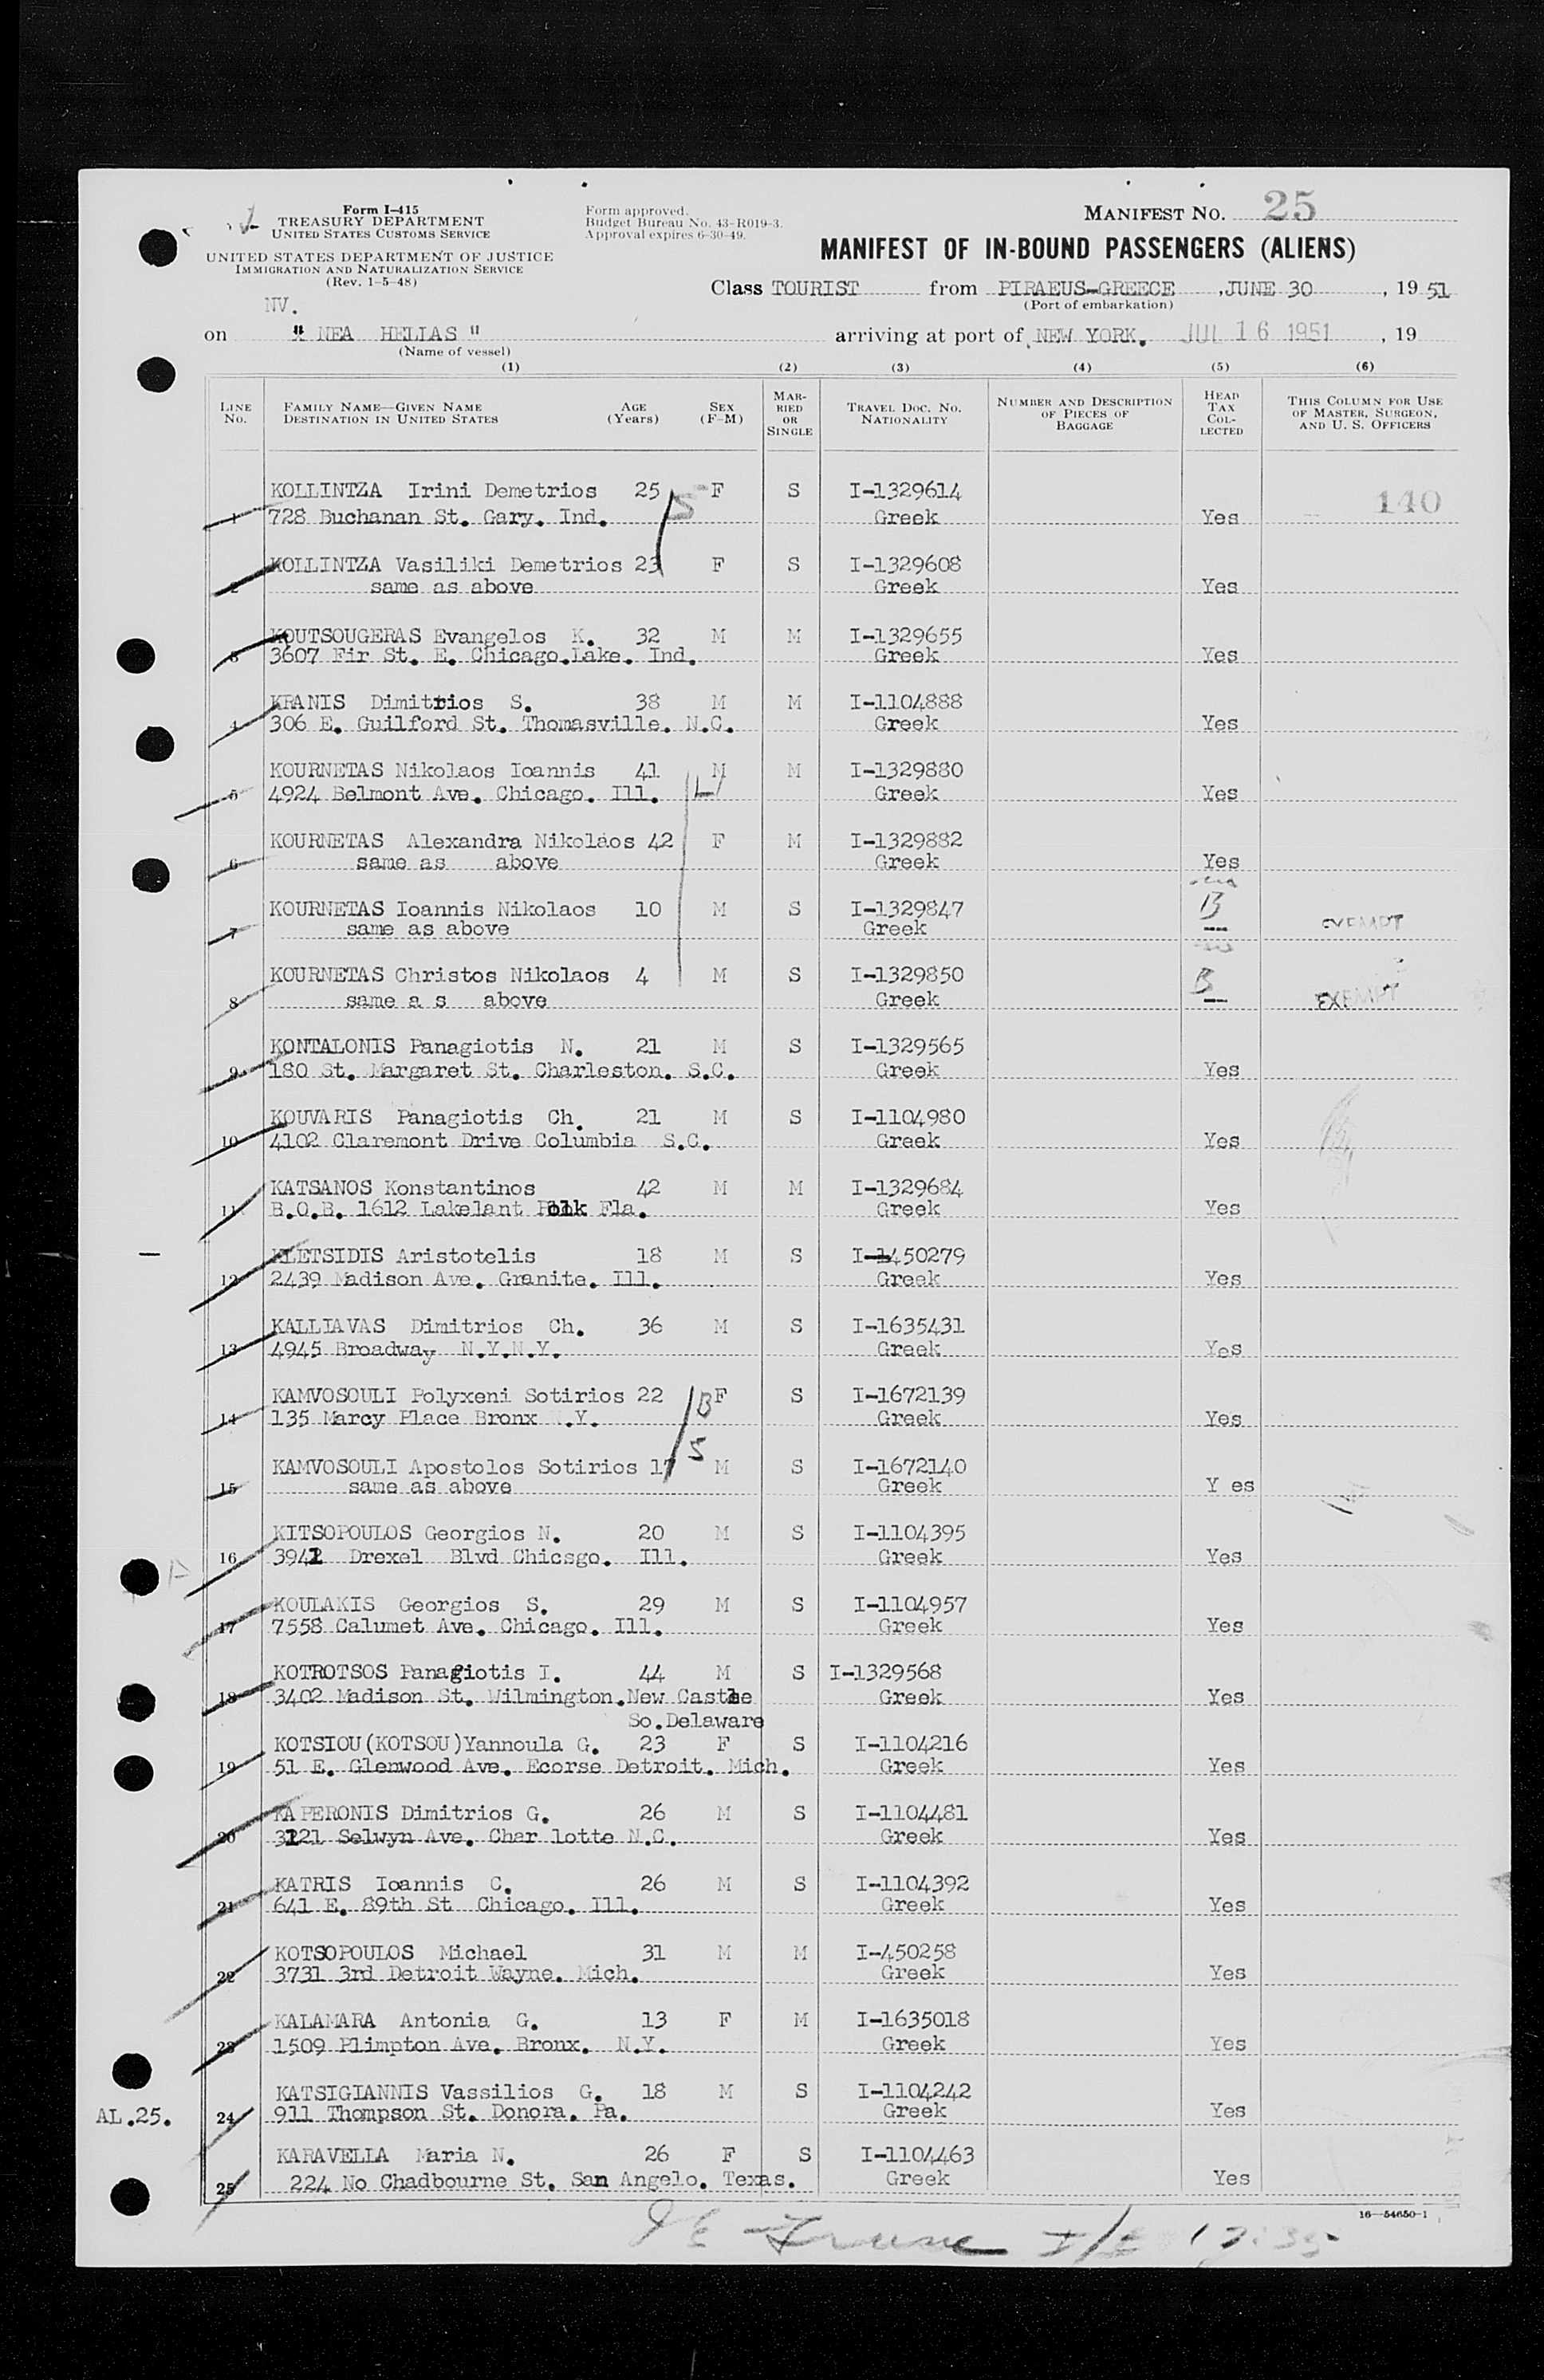 Form I-415
TREASURY DEPARTMENT
UNITED STATES CUSTOMS SERVICE
UNITED STATES DEPARTMENT OF JUSTICE
IMMIGRATION AND NATURALIZATION SERVICE
(Rev. 1-5-48)
Form approved.
Budget Bureau No. 43-R019-3.
Approval expires 6-30-49.
MANIFEST NO. 25
MANIFEST OF IN-BOUND PASSENGERS (ALIENS)
Class TOURIST from PIRAEUS-GREECE, JUNE 30, 1951
(Port of embarkation)
NV.
on " NEA HELIAS " arriving at port of NEW YORK. JUL 16 1951, 19
(Name of vessel)
(1) (2) (3) (4) (5) (6)
LINE No. FAMILY NAME—GIVEN NAME DESTINATION IN UNITED STATES AGE (Years) SEX (F-M) MARRIED OR SINGLE TRAVEL DOC. NO. NATIONALITY NUMBER AND DESCRIPTION OF PIECES OF BAGGAGE HEAD TAX COLLECTED THIS COLUMN FOR USE OF MASTER, SURGEON, AND U. S. OFFICERS
KOLLINTZA Irini Demetrios 25 F S I-1329614 140
1 728 Buchanan St. Gary. Ind. Greek Yes
KOLLINTZA Vasiliki Demetrios 23 F S I-1329608
2 same as above Greek Yes
KOUTSOUGERAS Evangelos K. 32 M M I-1329655
3 3607 Fir St. E. Chicago.Lake. Ind. Greek Yes
KRANIS Dimitrios S. 38 M M I-1104888
4 306 E. Guilford St. Thomasville. N.C. Greek Yes
KOURNETAS Nikolaos Ioannis 41 M M I-1329880
5 4924 Belmont Ave. Chicago. Ill. Greek Yes
KOURNETAS Alexandra Nikolaos 42 F M I-1329882
6 same as above Greek Yes
KOURNETAS Ioannis Nikolaos 10 M S I-1329847 B
7 same as above Greek EXEMPT
KOURNETAS Christos Nikolaos 4 M S I-1329850 B
8 same a s above Greek EXEMPT
KONTALONIS Panagiotis N. 21 M S I-1329565
9 180 St. Margaret St. Charleston. S.C. Greek Yes
KOUVARIS Panagiotis Ch. 21 M S I-1104980
10 4102 Claremont Drive Columbia S.C. Greek Yes
KATSANOS Konstantinos 42 M M I-1329684
11 B.O.B. 1612 Lakelant Polk Fla. Greek Yes
KLETSIDIS Aristotelis 18 M S I-1450279
12 2439 Madison Ave. Granite. Ill. Greek Yes
KALLIAVAS Dimitrios Ch. 36 M S I-1635431
13 4945 Broadway N.Y.N.Y. Greek Yes
KAMVOSOULI Polyxeni Sotirios 22 B F S I-1672139
14 135 Marcy Place Bronx .Y. Greek Yes
KAMVOSOULI Apostolos Sotirios 17 S M S I-1672140
15 same as above Greek Y es
KITSOPOULOS Georgios N. 20 M S I-1104395
16 3942 Drexel Blvd Chicsgo. Ill. Greek Yes
KOULAKIS Georgios S. 29 M S I-1104957
17 7558 Calumet Ave. Chicago. Ill. Greek Yes
KOTROTSOS Panagiotis I. 44 M S I-1329568
18 3402 Madison St. Wilmington.New Castle Greek Yes
So.Delaware
KOTSIOU(KOTSOU)Yannoula G. 23 F S I-1104216
19 51 E. Glenwood Ave. Ecorse Detroit. Mich. Greek Yes
KAPERONIS Dimitrios G. 26 M S I-1104481
20 3121 Selwyn Ave. Char lotte N.C. Greek Yes
KATRIS Ioannis C. 26 M S I-1104392
21 641 E. 89th St Chicago. Ill. Greek Yes
KOTSOPOULOS Michael 31 M M I-450258
22 3731 3rd Detroit Wayne. Mich. Greek Yes
KALAMARA Antonia G. 13 F M I-1635018
23 1509 Plimpton Ave. Bronx. N.Y. Greek Yes
KATSIGIANNIS Vassilios G. 18 M S I-1104242
AL.25. 24 911 Thompson St. Donora. Pa. Greek Yes
KARAVELLA Maria N. 26 F S I-1104463
25 224 No Chadbourne St. San Angelo. Texas. Greek Yes
16—54650-1